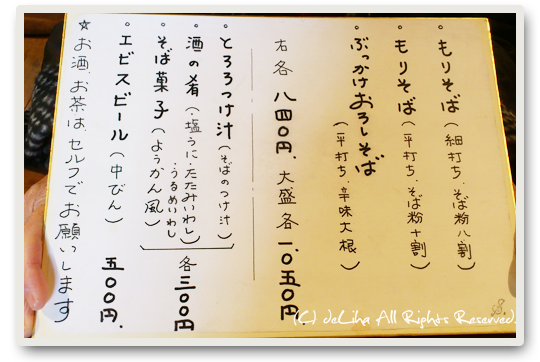 ・もりそば（細打ち、そば粉八割）
・もりそば（平打ち、そば粉十割）
・ぶっかけおろしそば
（平打ち、辛味大根）
右各 八四〇円、大盛各 一、〇五〇円
・とろろつけ汁（そばのつけ汁）
・酒の肴（・塩うに・たたみいわし
・うるめいわし）
・そば菓子（ようかん風）
各 三〇〇円
・エビスビール（中びん） 五〇〇円、
☆お酒、お茶は、セルフでお願いします
(C) deLiha All Rights Reserved.